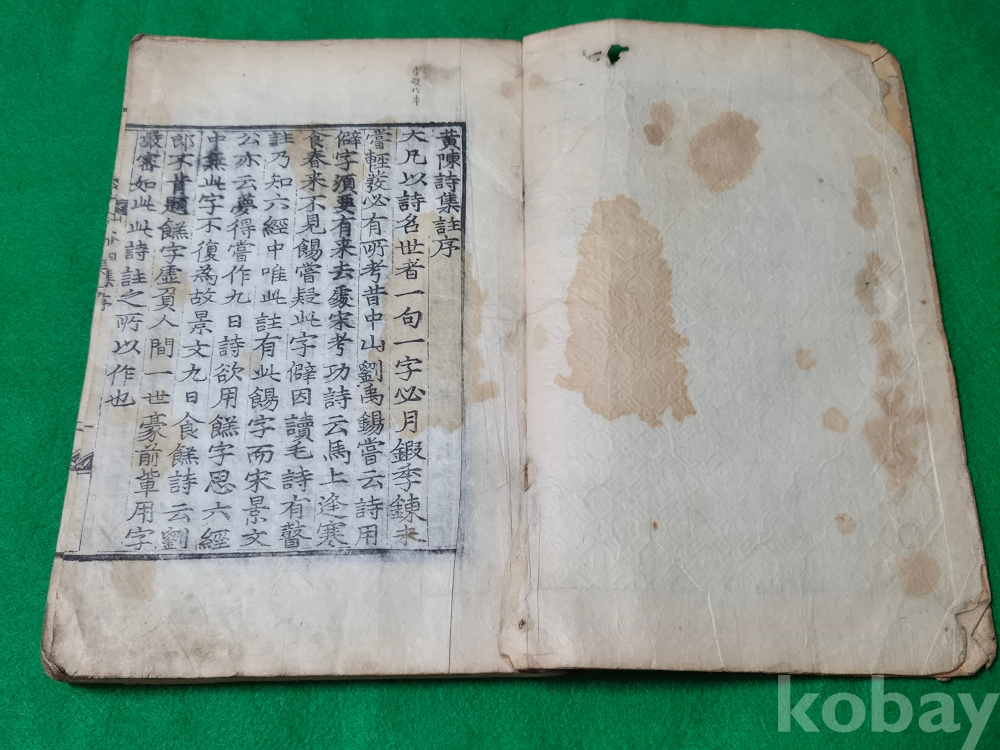 黄陳詩集註序
大凡以詩名世者一句一字必月鍜季鍊未
嘗輕發必有所考昔中山劉禹錫嘗云詩用
僻字須要有来去處宋考功詩云馬上逢寒
食春来不見餳嘗疑此字僻因讀毛詩有瞽
註乃知六經中唯此註有此餳字而宋景文
公亦云夢得嘗作九日詩欲用餻字思六經
中無此字不復為故景文九日食餻詩云劉
郎不肯題餻字虛負人間一世豪前輩用字
嚴審如此此詩註之所以作也
kobay